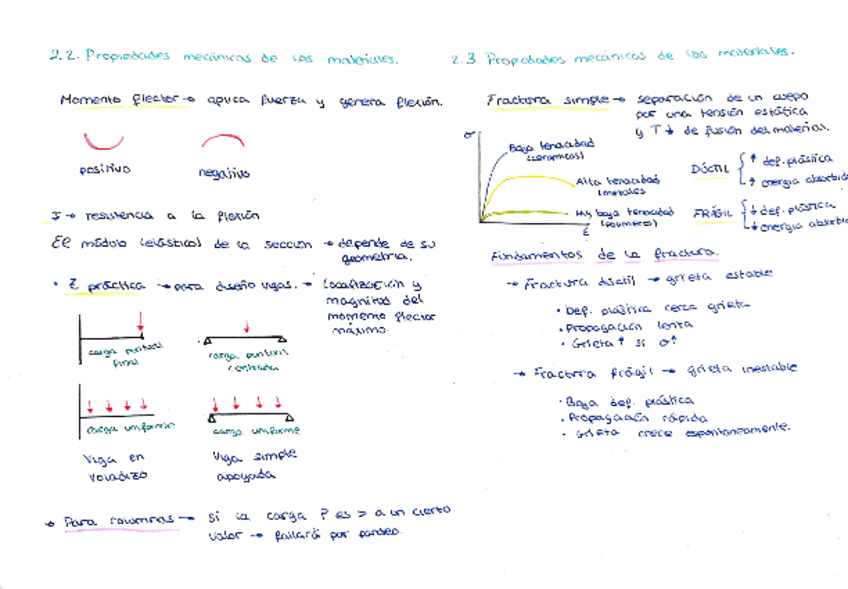 2.2. Propiedades mecánicas de los materiales.
Momento flector → aplica fuerza y genera flexión.
positivo
negativo
I → resistencia a la flexión
El módulo (elástico) de la sección → depende de su
geometría.
• Z práctica → para diseño vigas. → Localización y
magnitud del
momento flector
máximo.
carga puntual
final
carga puntual
centrada
carga uniforme
carga uniforme
Viga en
voladizo
Viga simple
apoyada
→ Para columnas → si la carga P es > a un cierto
valor → fallará por pandeo.
2.3 Propiedades mecánicas de los materiales.
Fractura simple → separación de un cuerpo
por una tensión estática
y T ↓ de fusión del material.
σ
Baja tenacidad
(cerámicos)
Alta tenacidad
(metales)
Muy baja tenacidad
(polímeros)
ε
DÚCTIL
↑ def. plástica
↑ energía absorbida
FRÁGIL
↓ def. plástica
↓ energía absorbida
Fundamentos de la fractura.
→ Fractura dúctil → grieta estable
• Def. plástica cerca grieta
• Propagación lenta
• Grieta ↑ si σ ↑
→ Fractura frágil → grieta inestable
• Baja def. plástica
• Propagación rápida
• Grieta crece espontáneamente.